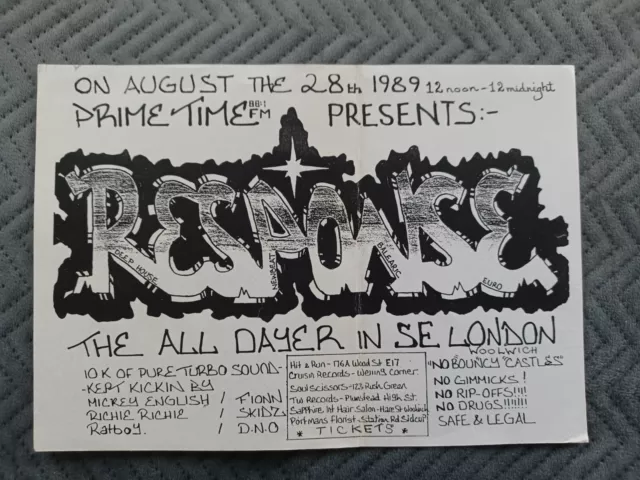 ON AUGUST THE 28th 1989 12 noon - 12 midnight
PRIME TIME 88.1 FM PRESENTS:-
RESPONSE
DEEP HOUSE
NEWBEAT
BALEARIC
EURO
THE ALL DAYER IN SE LONDON
WOOLWICH
10K OF PURE TURBO SOUND-
-KEPT KICKIN BY
MICKEY ENGLISH / FIONN
RICHIE RICHIE / SKIDZ
Ratboy. / D.N.O
Hit & Run - 176A Wood St E17
Crush Records - Welling Corner
Soul Scissors - 123 Rush Green
Tua Records - Plumstead High St.
Sapphire Hair Salon - Hare St Woolwich
Portmans Florist - Station Rd Sidcup
* TICKETS *
"NO BOUNCY CASTLES"
NO GIMMICKS!
NO RIP-OFFS!!!!
NO DRUGS!!!!!!!
SAFE & LEGAL